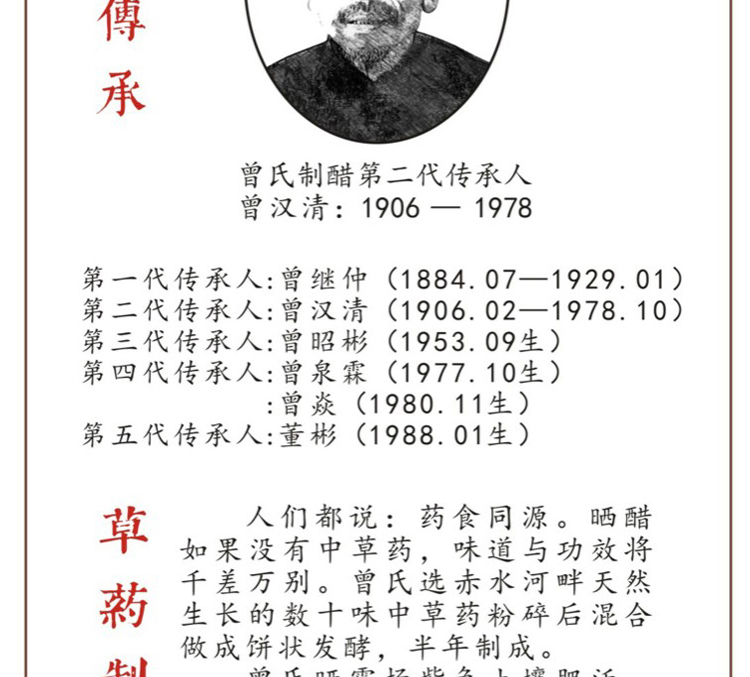 傳承
曾氏制醋第二代传承人
曾汉清：1906 — 1978
第一代传承人:曾继仲（1884.07—1929.01）
第二代传承人:曾汉清（1906.02—1978.10）
第三代传承人:曾昭彬（1953.09生）
第四代传承人:曾泉霖（1977.10生）
:曾焱（1980.11生）
第五代传承人:董彬（1988.01生）
草药制
人们都说：药食同源。晒醋
如果没有中草药，味道与功效将
千差万别。曾氏选赤水河畔天然
生长的数十味中草药粉碎后混合
做成饼状发酵，半年制成。